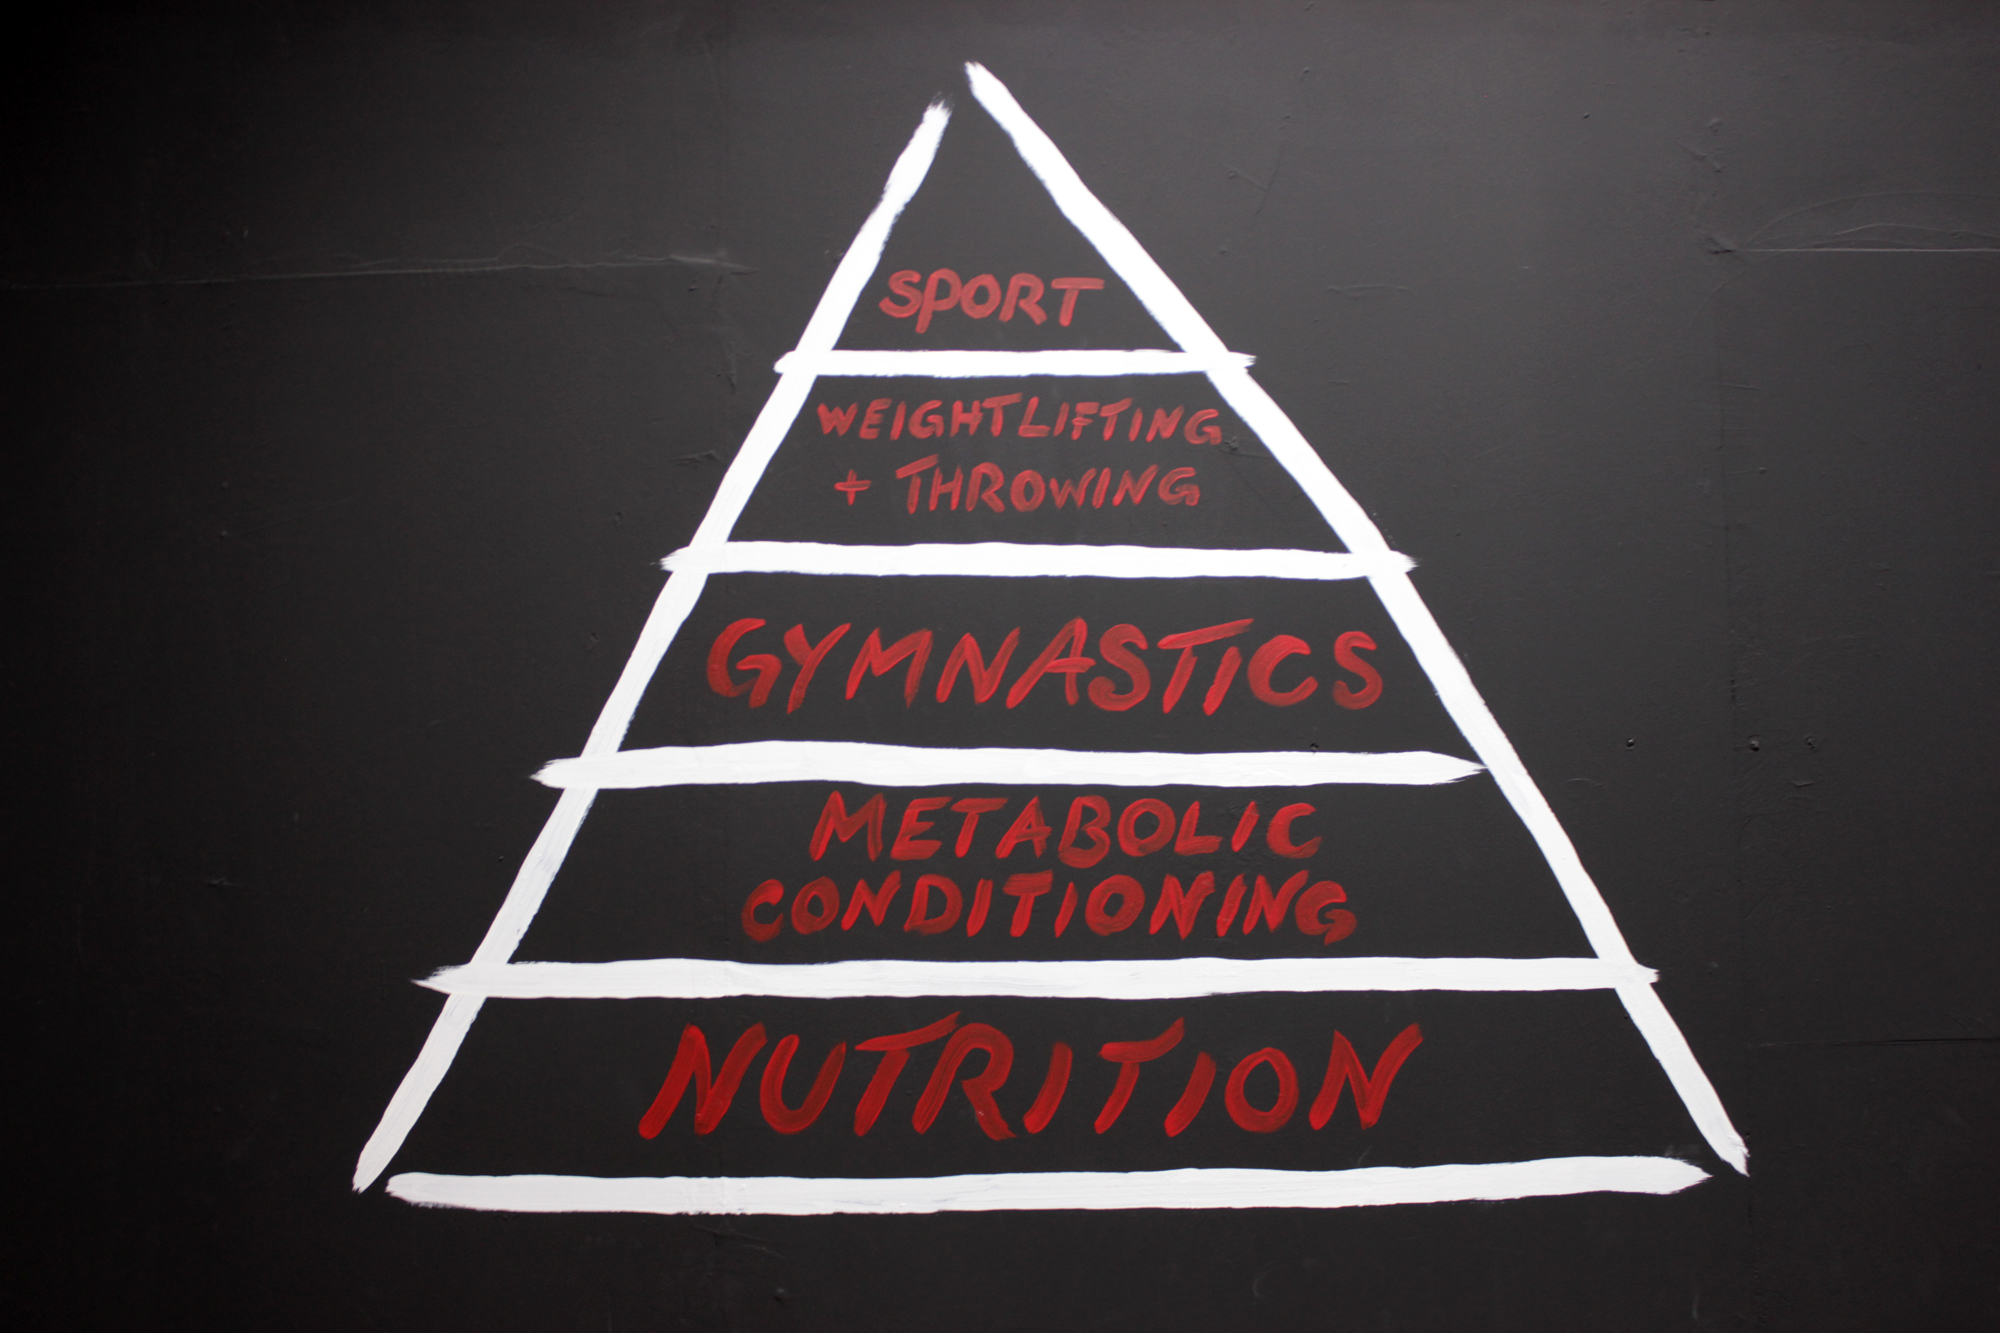 SPORT
WEIGHTLIFTING
+ THROWING
GYMNASTICS
METABOLIC
CONDITIONING
NUTRITION